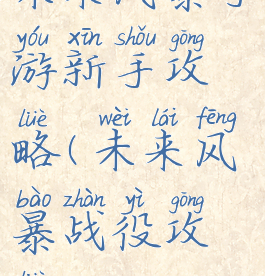 yóu xīn shǒu gōng
游新手攻
lüè wèi lái fēng
略(未来风
bào zhàn yì gōng
暴战役攻